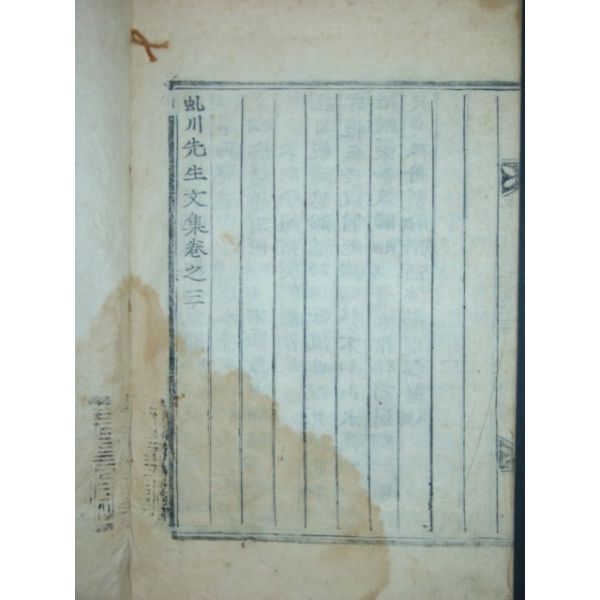 虬川先生文集卷之三